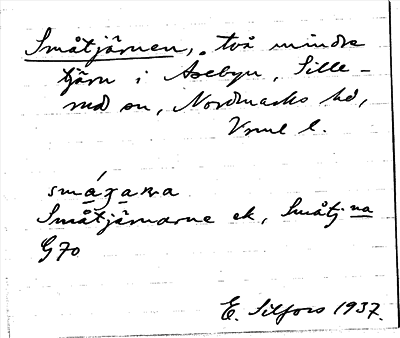 Småtjärnen, två mindre
tjärn i Åsebyn, Sille-
rud sn, Nordmarks hd,
Vrml l.
Småtjärnarne ek, Småtj na
G70
E. Silfors 1937.